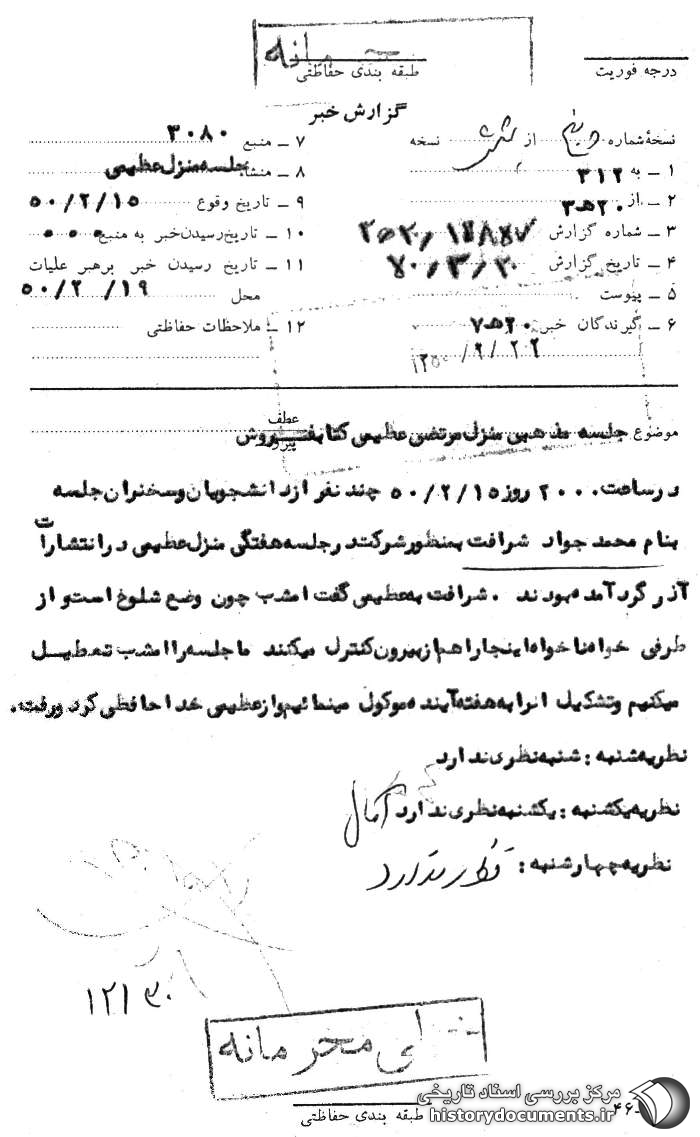 درجه فوریت
طبقه بندی حفاظتی
گزارش خبر
نسخهٔ شماره پنج از شش نسخه
۱ ــ به ۳۱۲
۲ ــ از ۲۰ھ۳
۳ ــ شماره گزارش
۴ ــ تاریخ گزارش
۵ ــ پیوست
۶ ــ گیرندگان خبر ۲۰ھ۷
۱۳۵۰/۲/۲۲
۷ ــ منبع ۳۰۸۰
۸ ــ منشاء جلسه منزل عظیمی
۹ ــ تاریخ وقوع ۵۰/۲/۱۵
۱۰ ــ تاریخ رسیدن خبر به منبع ۰۰۰
۱۱ ــ تاریخ رسیدن خبر برهبر علیات
محل ۵۰/۲/۱۹
۱۲ ــ ملاحظات حفاظتی
عطف
پیرو
موضوع جلسه مذهبی منزل مرتضی عظیمی کتابفروش
در ساعت ۲۰۰۰ روز ۵۰/۲/۱۵ چند نفر از دانشجویان و سخنران جلسه
بنام محمد جواد شرافت بمنظور شرکت در جلسه هفتگی منزل عظیمی در انتشارات
آذر گرد آمده بودند . شرافت به عظیمی گفت امشب چون وضع شلوغ است و از
طرفی خواه ناخواه اینجا را هم از بیرون کنترل میکنند ما جلسه را امشب تعطیل
میکنیم و تشکیل انرا به هفته آینده موکول مینمائیم و از عظیمی خدا حافظی کرد و رفت.
نظریه شنبه : شنبه نظری ندارد
نظریه یکشنبه : یکشنبه نظری ندارد
نظریه چهارشنبه : نظری ندارد
۱۲/۳۰
خیلی محرمانه
طبقه بندی حفاظتی
مرکز بررسی اسناد تاریخی
historydocuments.ir